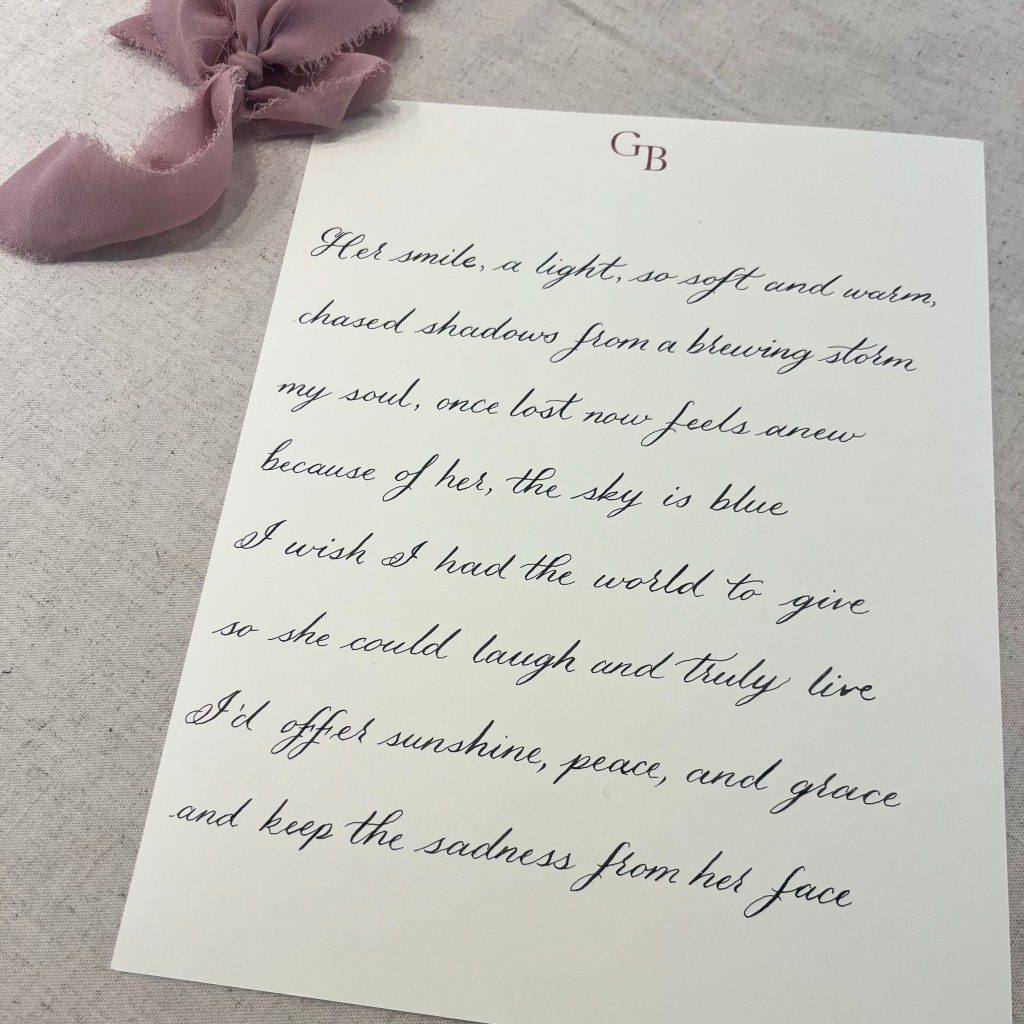 GB
Her smile, a light, so soft and warm,
chased shadows from a brewing storm
my soul, once lost now feels anew
because of her, the sky is blue
I wish I had the world to give
so she could laugh and truly live
I'd offer sunshine, peace, and grace
and keep the sadness from her face